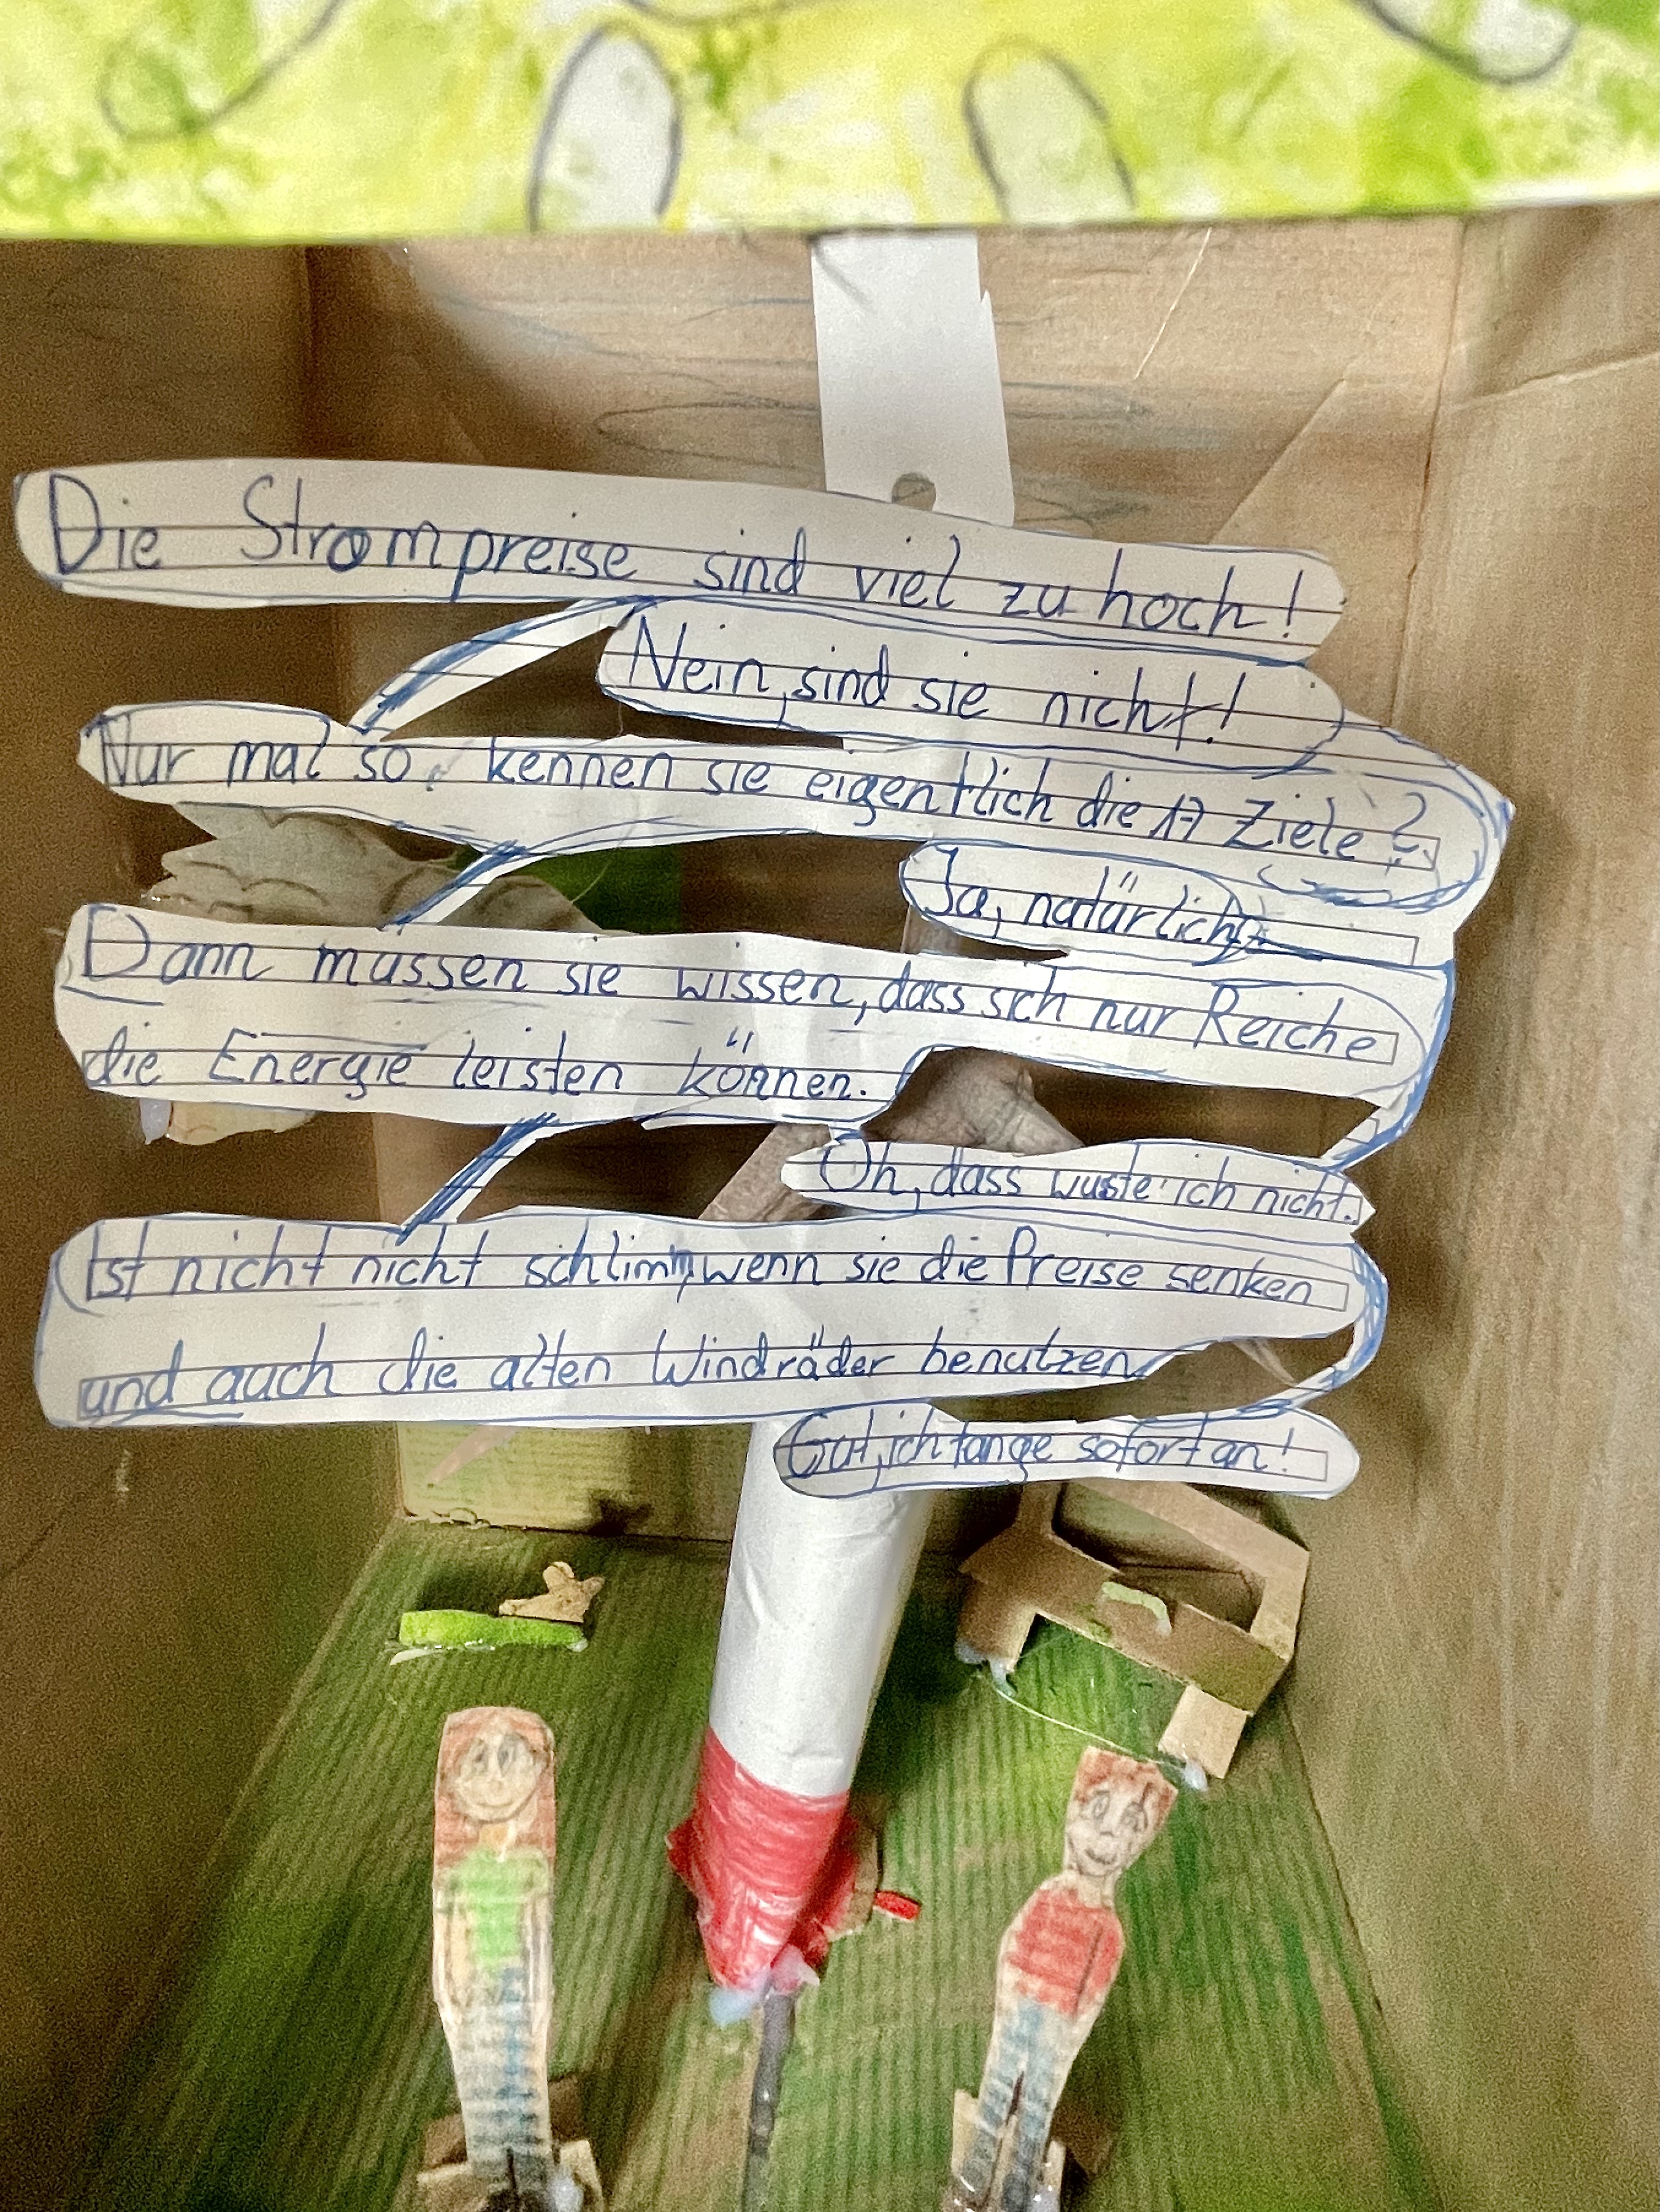 Die Strompreise sind viel zu hoch!
Nein, sind sie nicht!
Nur mal so, kennen sie eigentlich die 17 Ziele?
Ja, natürlich
Dann mussen sie wissen, dass sich nur Reiche
die Energie leisten können.
Oh, dass wuste ich nicht.
Ist nicht nicht schlimm, wenn sie die Preise senken
und auch die alten Windräder benutzen
Gut, ich fange sofort an!